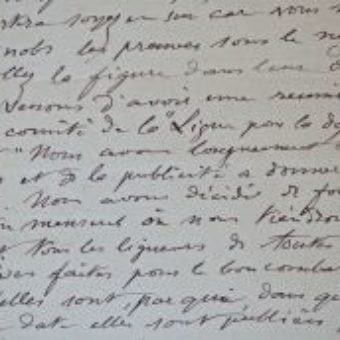 soyez en sur car nous
nobs les preuves sous le ne
la figure dans leur
venons d'avoir une reunio
comité de la "Ligue par la de
" Nous avons longuement
s et de la publicité a donner
. Nous avons décidé de fo
n mensuel où nous tiendron
t tous les ligueurs de toutes
ives faites pour le bon combat
elles sont, par qui, dans qu
date elles sont publiées